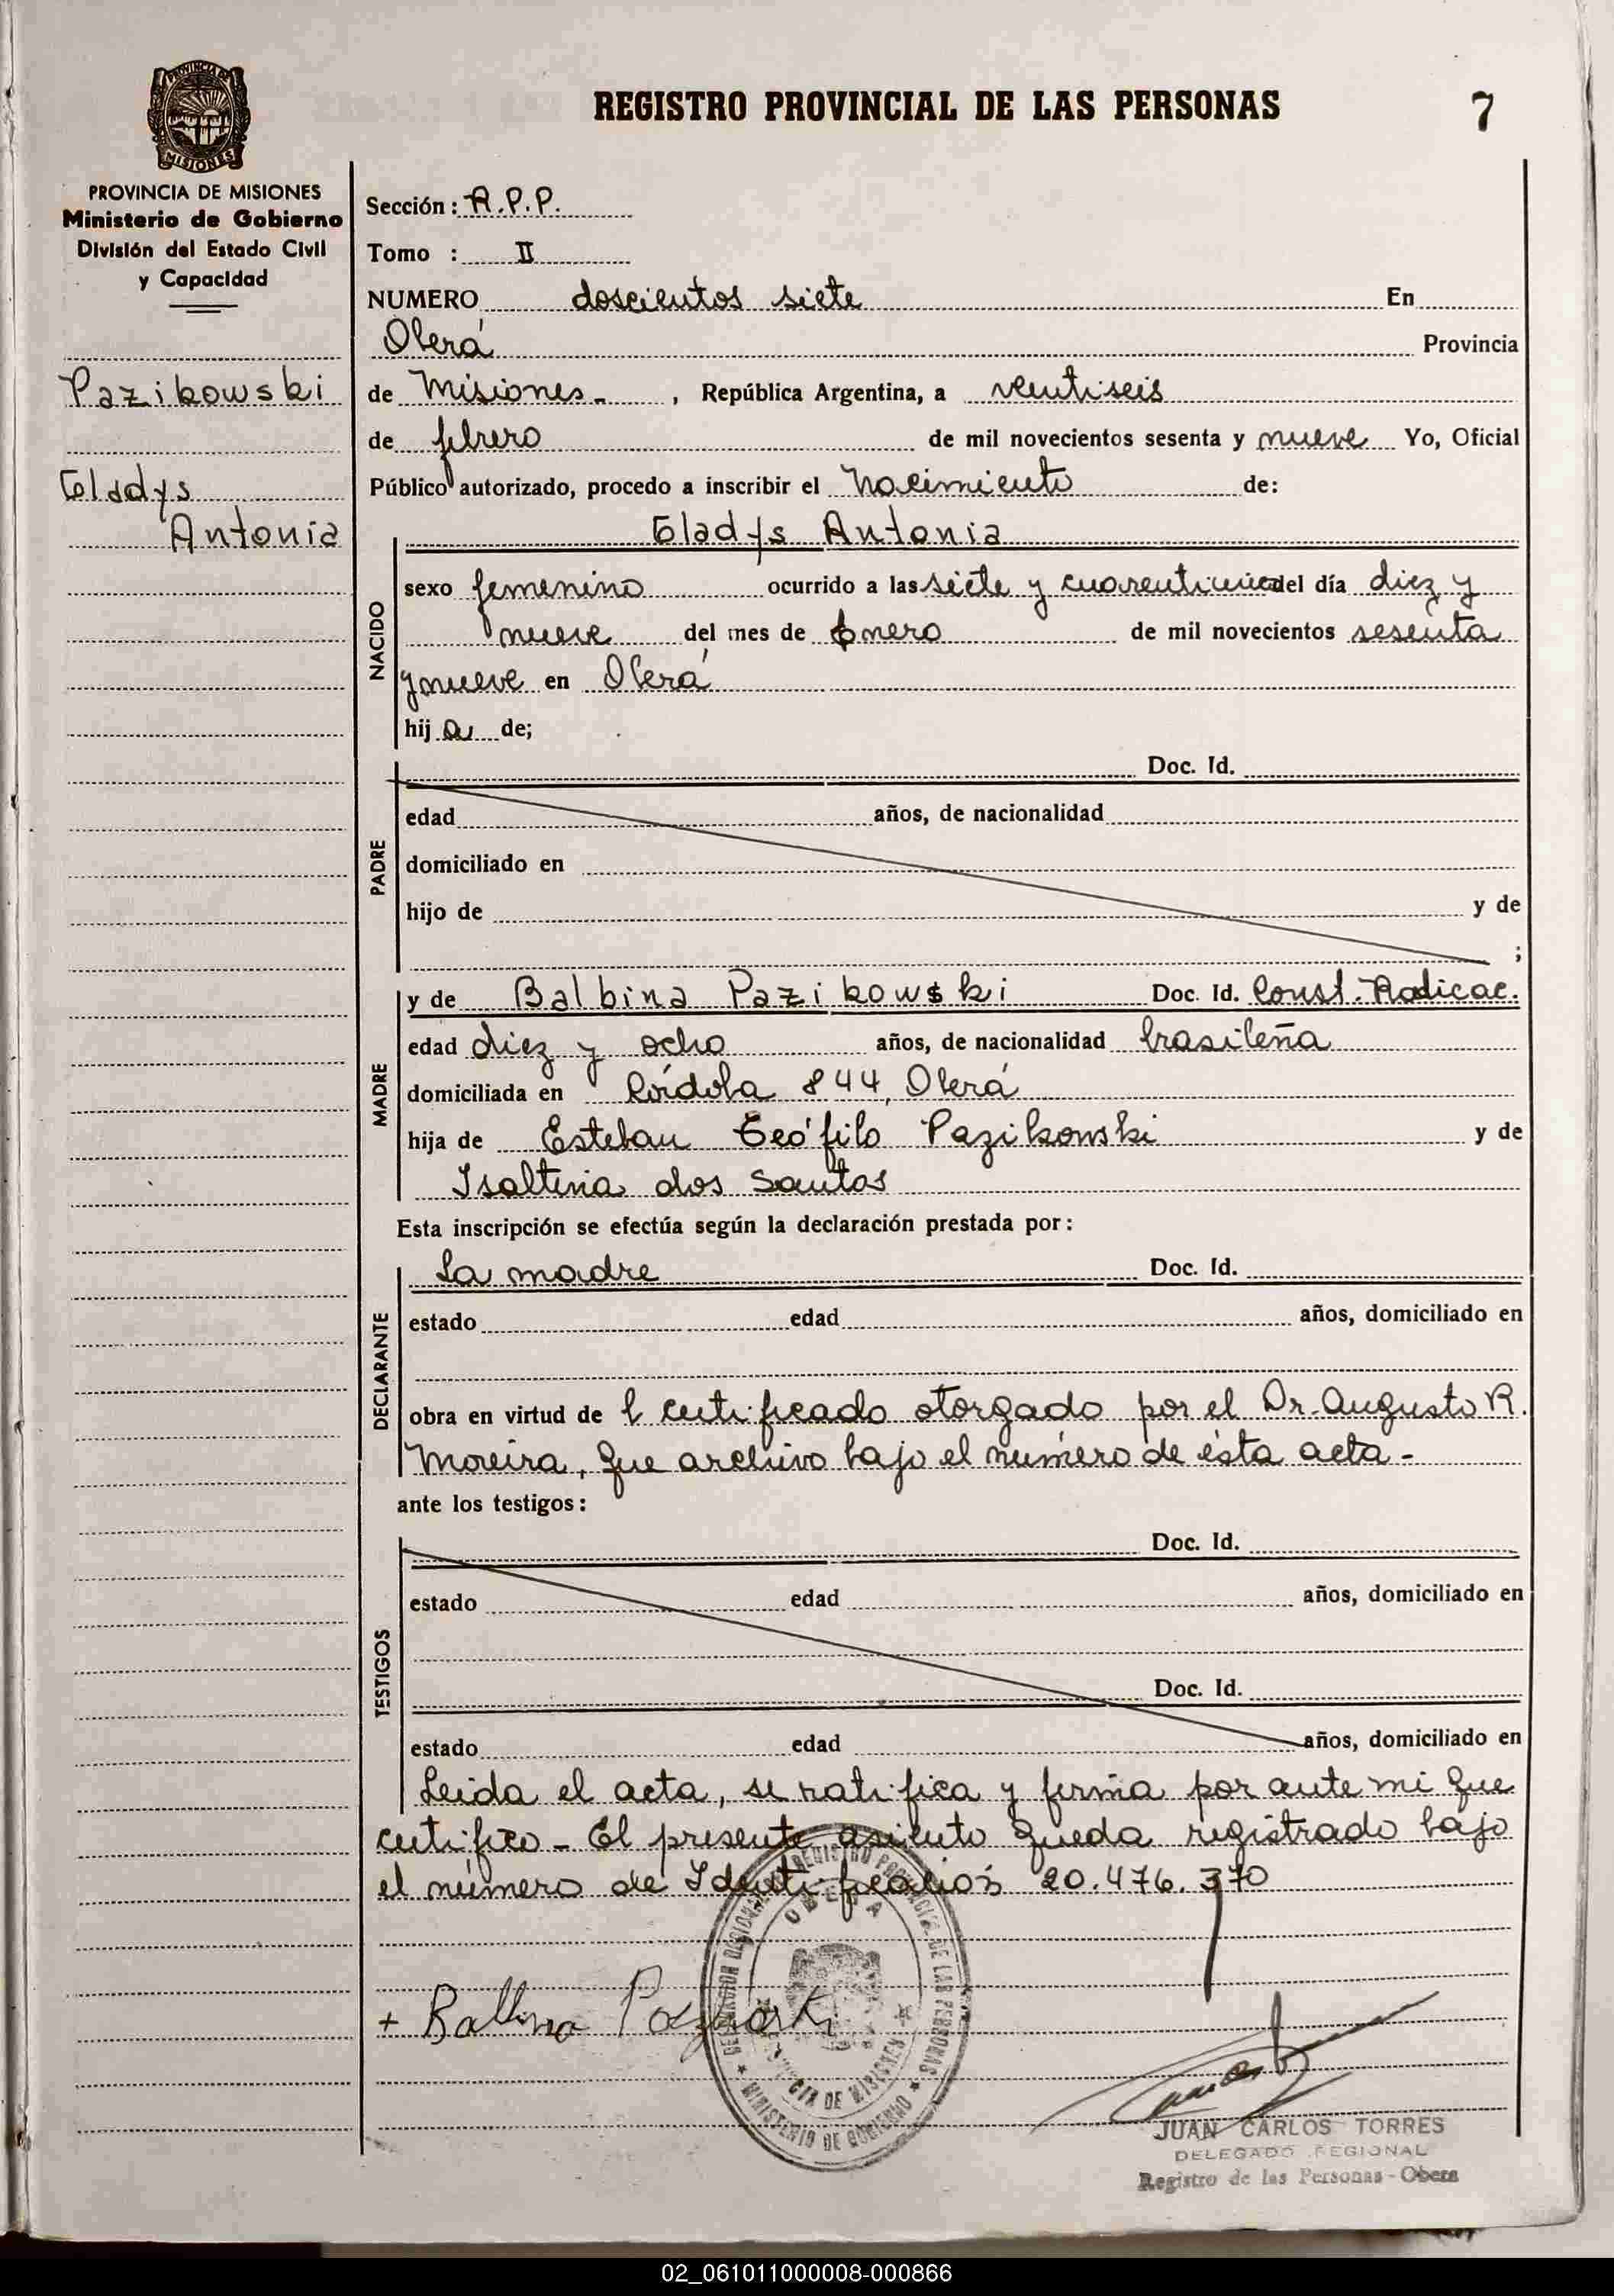 REGISTRO PROVINCIAL DE LAS PERSONAS
7
PROVINCIA DE
MISIONES
PROVINCIA DE MISIONES
Ministerio de Gobierno
División del Estado Civil
y Capacidad
Pazikowski
Gladys
Antonia
Sección: R.P.P.
Tomo : II
NUMERO doscientos siete En
Oberá Provincia
de Misiones- , República Argentina, a veintiseis
de febrero de mil novecientos sesenta y nueve Yo, Oficial
Público autorizado, procedo a inscribir el nacimiento de:
Gladys Antonia
NACIDO
sexo femenino ocurrido a las siete y del día diez y
nueve del mes de Enero de mil novecientos sesenta
y nueve en Oberá
hij a de;
PADRE
Doc. Id.
edad años, de nacionalidad
domiciliado en
hijo de y de
;
MADRE
y de Balbina Pazikowski Doc. Id. Const. Radicac.
edad diez y ocho años, de nacionalidad brasileña
domiciliada en Córdoba 844, Oberá
hija de Esteban Teófilo Pazikowski y de
Isaltina dos Santos
Esta inscripción se efectúa según la declaración prestada por:
DECLARANTE
La madre Doc. Id.
estado edad años, domiciliado en
obra en virtud de l certificado otorgado por el Dr. Augusto R.
Moreira, que archivo bajo el número de ésta acta-
ante los testigos:
TESTIGOS
Doc. Id.
estado edad años, domiciliado en
Doc. Id.
estado edad años, domiciliado en
Leida el acta, se ratifica y firma por ante mi que
certifico- El presente asiento queda registrado bajo
el número de Identificación 20.476.370
REGISTRO PROVINCIAL DE LAS PERSONAS
OBERA
PROVINCIA DE MISIONES
MINISTERIO DE GOBIERNO
+ Balbina
JUAN CARLOS TORRES
DELEGADO REGIONAL
Registro de las Personas - Obera
02_061011000008-000866